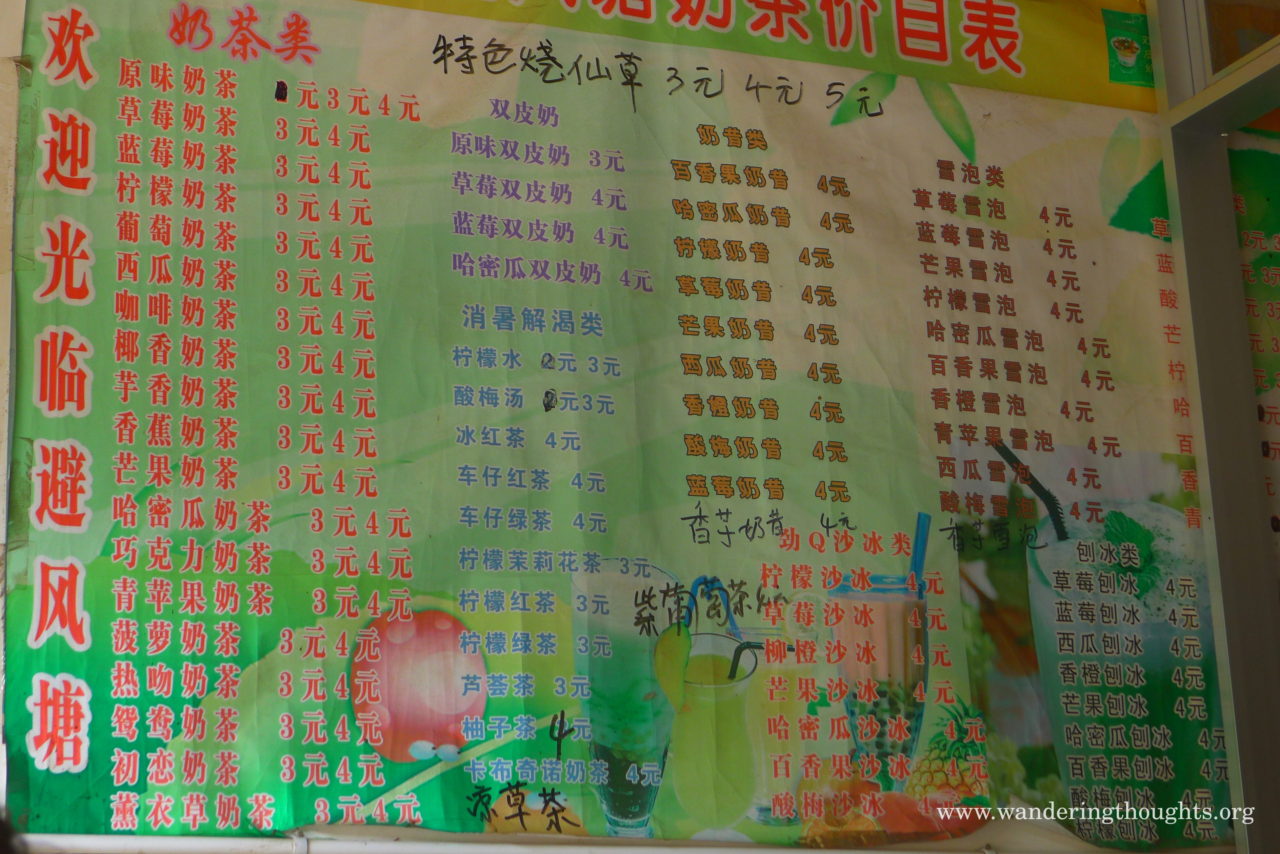 塘奶茶价目表
欢迎光临避风塘
奶茶类
原味奶茶 元3元4元
草莓奶茶 3元4元
蓝莓奶茶 3元4元
柠檬奶茶 3元4元
葡萄奶茶 3元4元
西瓜奶茶 3元4元
咖啡奶茶 3元4元
椰香奶茶 3元4元
芋香奶茶 3元4元
香蕉奶茶 3元4元
芒果奶茶 3元4元
哈密瓜奶茶 3元4元
巧克力奶茶 3元4元
青苹果奶茶 3元4元
菠萝奶茶 3元4元
热吻奶茶 3元4元
鸳鸯奶茶 3元4元
初恋奶茶 3元4元
薰衣草奶茶 3元4元
特色烧仙草 3元 4元 5元
双皮奶
原味双皮奶 3元
草莓双皮奶 4元
蓝莓双皮奶 4元
哈密瓜双皮奶 4元
消暑解渴类
柠檬水 2元 3元
酸梅汤 元3元
冰红茶 4元
车仔红茶 4元
车仔绿茶 4元
柠檬茉莉花茶 3元
柠檬红茶 3元
柠檬绿茶 3元
芦荟茶 3元
柚子茶 4元
卡布奇诺奶茶 4元
凉草茶
奶昔类
百香果奶昔 4元
哈密瓜奶昔 4元
柠檬奶昔 4元
草莓奶昔 4元
芒果奶昔 4元
西瓜奶昔 4元
香橙奶昔 4元
酸梅奶昔 4元
蓝莓奶昔 4元
香芋奶昔 4元
劲Q沙冰类
柠檬沙冰 4元
草莓沙冰 4元
柳橙沙冰 4元
芒果沙冰 4元
哈密瓜沙冰 4元
百香果沙冰 4元
酸梅沙冰 4元
雪泡类
草莓雪泡 4元
蓝莓雪泡 4元
芒果雪泡 4元
柠檬雪泡 4元
哈密瓜雪泡 4元
百香果雪泡 4元
香橙雪泡 4元
青苹果雪泡 4元
西瓜雪泡 4元
酸梅雪泡 4元
香芋雪泡
刨冰类
草莓刨冰 4元
蓝莓刨冰 4元
西瓜刨冰 4元
香橙刨冰 4元
芒果刨冰 4元
哈密瓜刨冰 4元
百香果刨冰 4元
酸梅刨冰 4元
柠檬刨冰 4元
草
蓝
酸
芒
柠
哈
百
香
青
www.wanderingthoughts.org